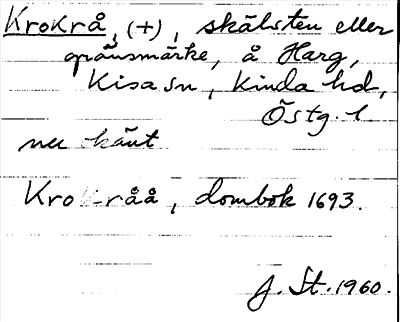 Krokrå, (+), skälsten eller
gränsmärke, å Harg,
Kisa sn, Kinda hd,
Östg. l
nu okänt
Kro-råå, dombok 1693.
J. St. 1960.